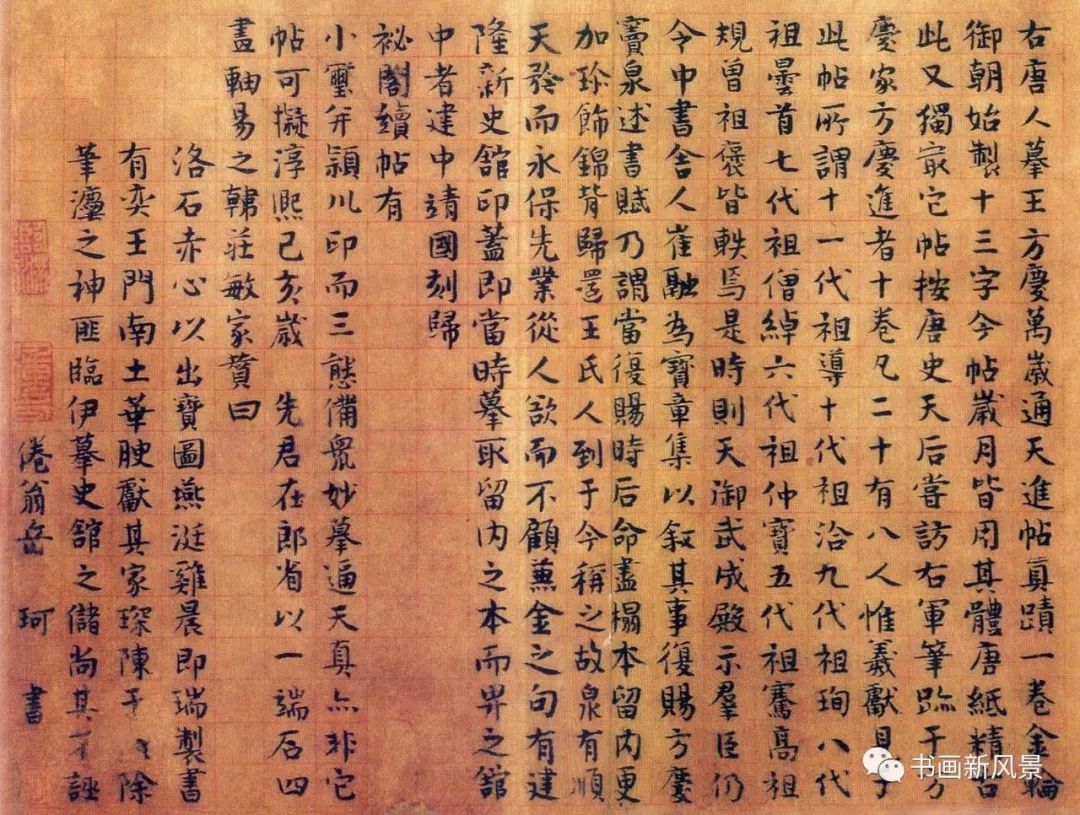 右唐人摹王方慶萬歲通天進帖真蹟一卷金輪
御朝始製十三字今帖歲月皆用其體唐紙精古
此又獨冣它帖按唐史天后嘗訪右軍筆跡于方
慶家方慶進者十卷凡二十有八人惟羲獻見于
此帖所謂十一代祖導十代祖洽九代祖珣八代
祖曇首七代祖僧綽六代祖仲寶五代祖騫高祖
規曾祖褒皆軼焉是時則天御武成殿示羣臣仍
令中書舍人崔融為寶章集以敘其事復賜方慶
竇泉述書賦乃謂當復賜時后命盡榻本留內更
加珍飾錦背歸還王氏人到于今稱之故泉有順
天矜而永保先業從人欲而不顧兼金之句有建
隆新史館印蓋即當時摹取留內之本而畀之館
中者建中靖國刻歸
祕閣續帖有
小璽并潁川印而三態備眾妙摹逼天真亦非它
帖可擬淳熙己亥歲 先君在郎省以一端石四
畫軸易之韓莊敏家贊曰
洛石赤心以出寶圖燕涎雞晨即瑞製書
有奕王門南土華腴獻其家琛陳于 除
筆灋之神匪臨伊摹史館之儲尚其 誣
倦翁岳 珂 書
书画新风景